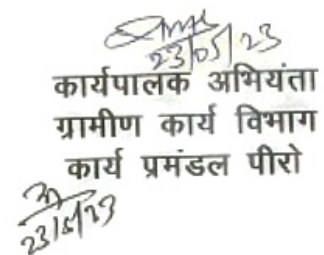 23/05/23
कार्यपालक अभियंता
ग्रामीण कार्य विभाग
कार्य प्रमंडल पीरो
23/5/23